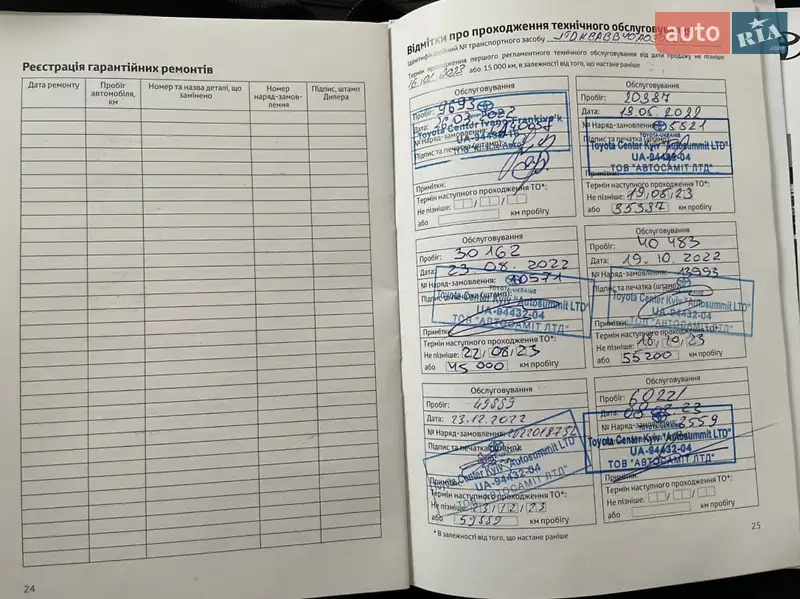 Реєстрація гарантійних ремонтів
Дата ремонту
Пробіг автомобіля, км
Номер та назва деталі, що замінено
Номер наряд-замов-лення
Підпис, штамп Дилера
24
auto RIA.com
Відмітки про проходження технічного обслуговування
Ідентифікаційний № транспортного засобу
Термін проходження першого регламентного технічного обслуговування від дати продажу не пізніше
або 15 000 км, в залежності від того, що настане раніше
Обслуговування
Пробіг: 9693
Дата: 26.03.2022
№ Наряд-замовлення:
Підпис та печатка (штамп):
Toyota Center Ivano-Frankivs'k
Примітки:
Термін наступного проходження ТО*:
Не пізніше:
або км пробігу
Обслуговування
Пробіг: 20387
Дата: 19.05.2022
№ Наряд-замовлення: 5521
Підпис та печатка (штамп):
Toyota Center Kyiv "Autosummit LTD"
UA-94432-04
ТОВ "АВТОСАМІТ ЛТД"
Примітки:
Термін наступного проходження ТО*:
Не пізніше: 19.05.23
або 35387 км пробігу
Обслуговування
Пробіг: 30162
Дата: 23.08.2022
№ Наряд-замовлення: 10571
Підпис та печатка (штамп):
TOYOTA-УКРАЇНА
Toyota Center Kyiv "Autosummit LTD"
UA-94432-04
ТОВ "АВТОСАМІТ ЛТД"
Примітки:
Термін наступного проходження ТО*:
Не пізніше: 22/08/23
або 45 000 км пробігу
Обслуговування
Пробіг: 40 483
Дата: 19.10.2022
№ Наряд-замовлення: 13993
Підпис та печатка (штамп):
TOYOTA-УКРАЇНА
Toyota Center Kyiv "Autosummit LTD"
UA-94432-04
ТОВ "АВТОСАМІТ ЛТД"
Примітки:
Термін наступного проходження ТО*:
Не пізніше: 18/10/23
або 55 200 км пробігу
Обслуговування
Пробіг: 49559
Дата: 23.12.2022
№ Наряд-замовлення:
Підпис та печатка (штамп):
Toyota Center Kyiv "Autosummit LTD"
UA-94432-04
ТОВ "АВТОСАМІТ ЛТД"
Примітки:
Термін наступного проходження ТО*:
Не пізніше: 23/12/23
або 59559 км пробігу
Обслуговування
Пробіг: 60221
Дата:
№ Наряд-замовлення:
Toyota Center Kyiv "Autosummit LTD"
UA-94432-04
ТОВ "АВТОСАМІТ ЛТД"
Примітки:
Термін наступного проходження ТО*:
Не пізніше:
або км пробігу
* В залежності від того, що настане раніше
25